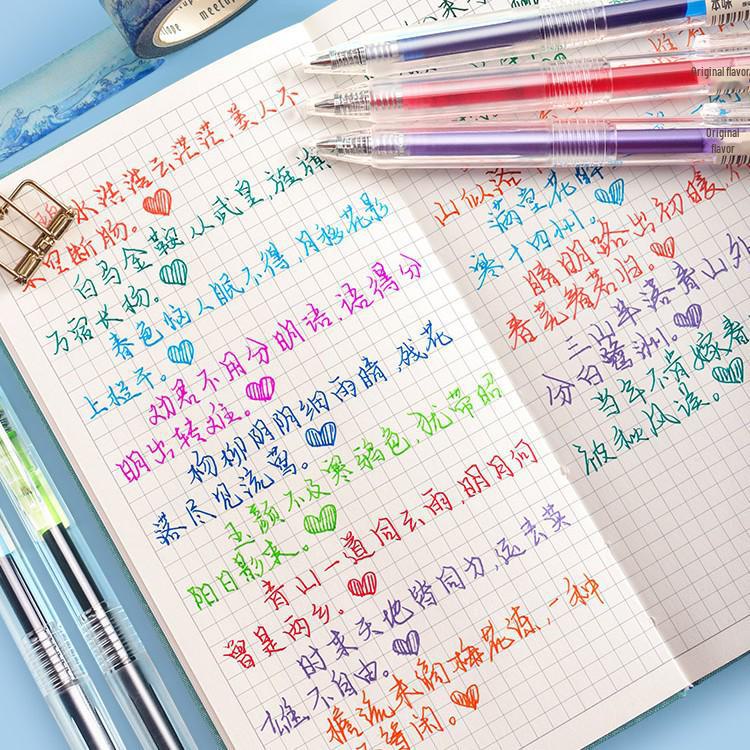 meetup
本味
Original flavor
Original
flavor
水浩浩云茫茫,美人不
断肠。
白马金鞍从武皇,旌旗
万宿长杨。
春色恼人眠不得,月移花影
上栏干。
劝君不用分明语,语得分
明出转难。
杨柳阴阴细雨晴,残花
落尽见流莺。
玉颜不及寒鸦色,犹带昭
阳日影来。
青山一道同云雨,明月何
曾是两乡。
时来天地皆同力,运去英
雄不自由。
檐流未滴梅花,一种
等闲。
山似洛
满堂花醉
寒十四州。
晴明路出初暖
春芜看归。
三山半落青山外
分白鹭洲。
当年不肯嫁春
被秋风误。